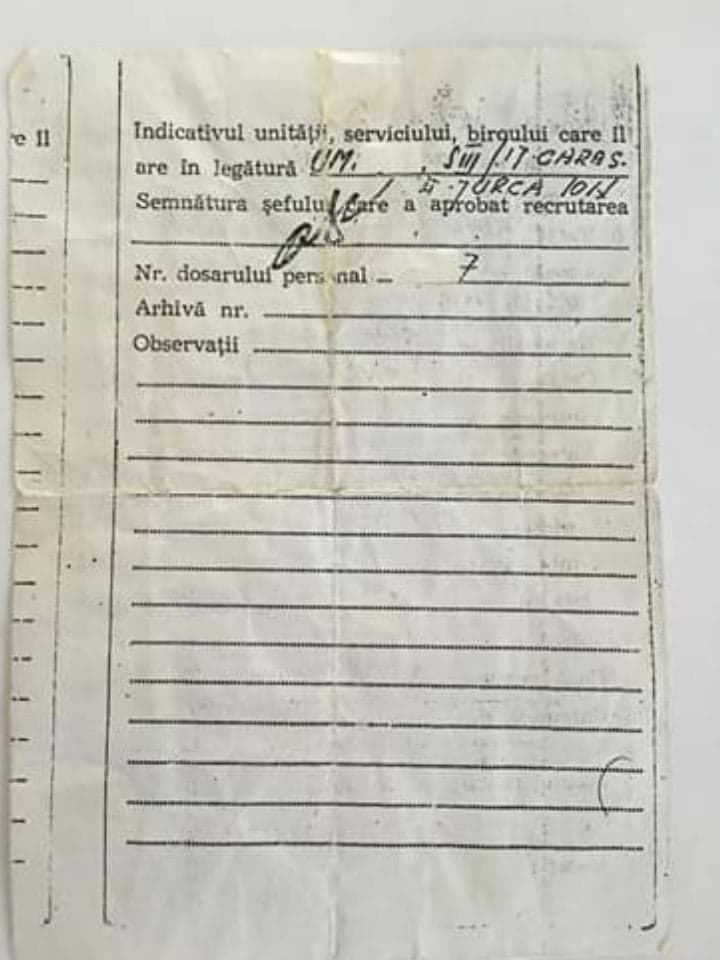 e îl
Indicativul unității, serviciului, biroului care îl
are în legătură UM. SIII/17. CARAS.
TURCA ION
Semnătura șefului care a aprobat recrutarea
Nr. dosarului personal 7
Arhivă nr.
Observații